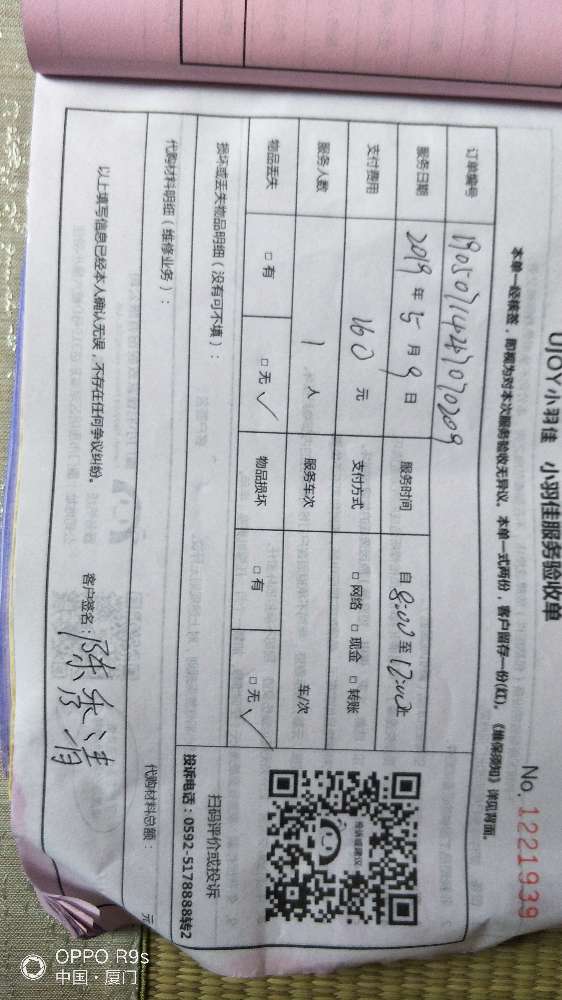 UJOY小羽佳 小羽佳服务验收单
No. 1221939
本单一经签签，即视为对本次服务验收无异议。本单一式两份，客户留存一份(红)。《维保须知》详见背面。
订单编号 19050714247070209
服务日期 2019年5月9日 服务时间 自8:00至12:00止
支付费用 160元 支付方式 □网络 □现金 □转账
服务人数 1人 服务车次 车/次
物品丢失 □有 □无✓ 物品损坏 □有 □无✓
投诉或建议
扫码评价或投诉
投诉电话：0592-5178888转2
损坏或丢失物品明细（没有可不填）：
代购材料明细（维修业务）： 代购材料总额： 元
以上填写信息已经本人确认无误，不存在任何争议纠纷。 客户签名：陈秀清
OPPO R9s
中国·厦门